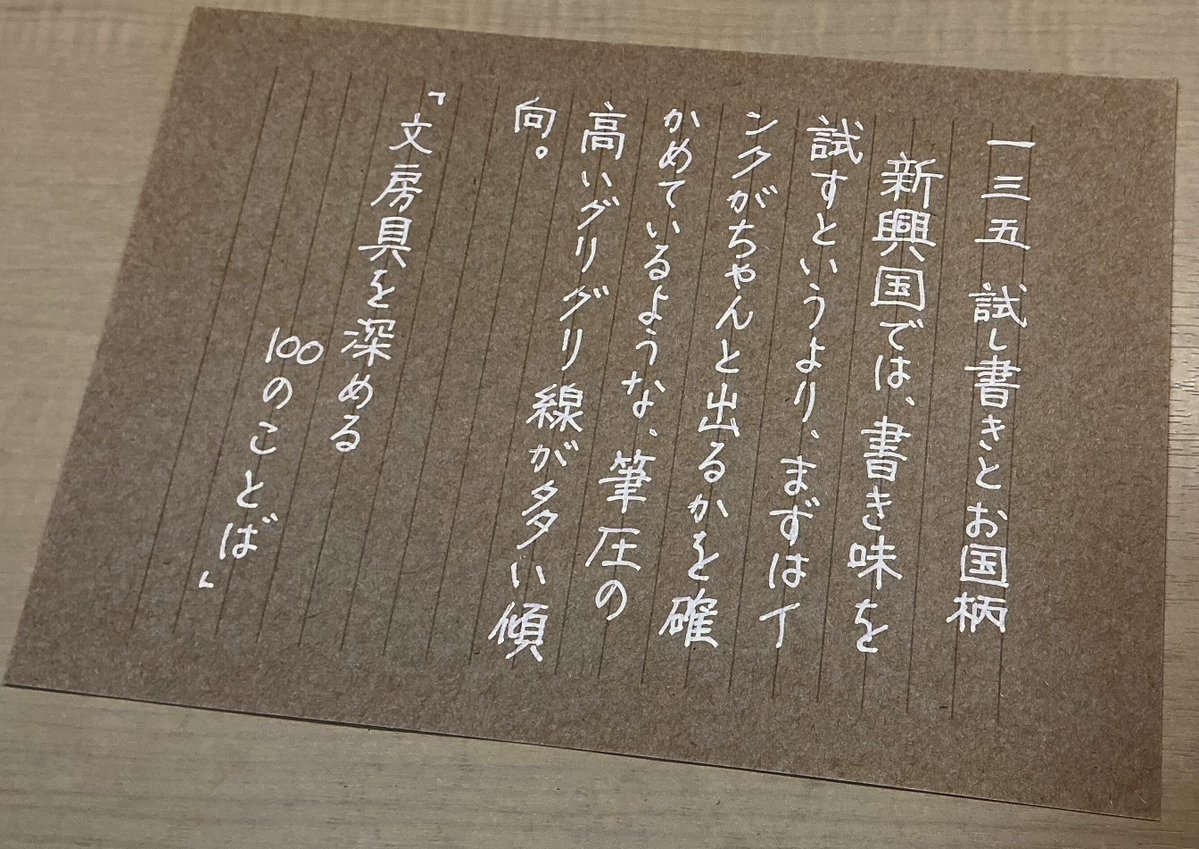 一三五 試し書きとお国柄
新興国では、書き味を
試すというより、まずはイ
ンクがちゃんと出るかを確
かめているような、筆圧の
高いグリグリ線が多い傾
向。
「文房具を深める
100のことば」